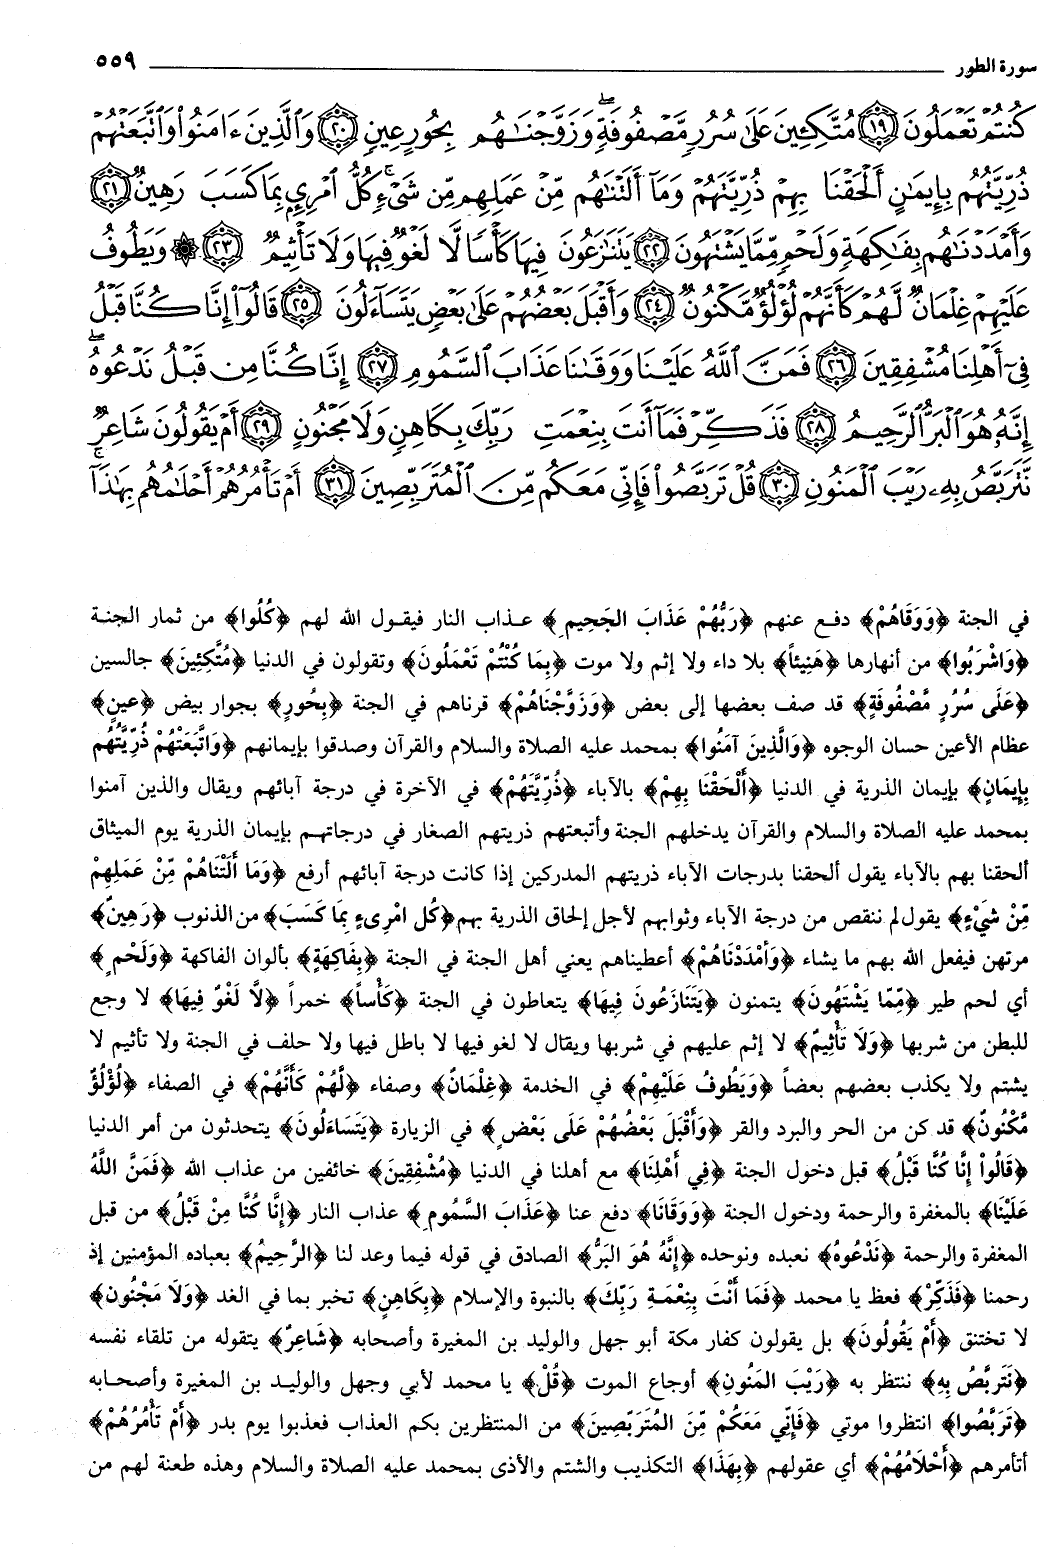 سورة الطور ٥٥٩
كُنتُمْ تَعْمَلُونَ ١٩ مُتَّكِـِٔينَ عَلَىٰ سُرُرٍ مَّصْفُوفَةٍ ۖ وَزَوَّجْنَٰهُم بِحُورٍ عِينٍ ٢٠ وَٱلَّذِينَ ءَامَنُوا۟ وَٱتَّبَعَتْهُمْ
ذُرِّيَّتُهُم بِإِيمَٰنٍ أَلْحَقْنَا بِهِمْ ذُرِّيَّتَهُمْ وَمَآ أَلَتْنَٰهُم مِّنْ عَمَلِهِم مِّن شَىْءٍ ۚ كُلُّ ٱمْرِئٍۭ بِمَا كَسَبَ رَهِينٌ ٢١
وَأَمْدَدْنَٰهُم بِفَٰكِهَةٍ وَلَحْمٍ مِّمَّا يَشْتَهُونَ ٢٢ يَتَنَٰزَعُونَ فِيهَا كَأْسًا لَّا لَغْوٌ فِيهَا وَلَا تَأْثِيمٌ ٢٣ ۞ وَيَطُوفُ
عَلَيْهِمْ غِلْمَانٌ لَّهُمْ كَأَنَّهُمْ لُؤْلُؤٌ مَّكْنُونٌ ٢٤ وَأَقْبَلَ بَعْضُهُمْ عَلَىٰ بَعْضٍ يَتَسَآءَلُونَ ٢٥ قَالُوٓا۟ إِنَّا كُنَّا قَبْلُ
فِىٓ أَهْلِنَا مُشْفِقِينَ ٢٦ فَمَنَّ ٱللَّهُ عَلَيْنَا وَوَقَىٰنَا عَذَابَ ٱلسَّمُومِ ٢٧ إِنَّا كُنَّا مِن قَبْلُ نَدْعُوهُ ۖ
إِنَّهُۥ هُوَ ٱلْبَرُّ ٱلرَّحِيمُ ٢٨ فَذَكِّرْ فَمَآ أَنتَ بِنِعْمَتِ رَبِّكَ بِكَاهِنٍ وَلَا مَجْنُونٍ ٢٩ أَمْ يَقُولُونَ شَاعِرٌ
نَّتَرَبَّصُ بِهِۦ رَيْبَ ٱلْمَنُونِ ٣٠ قُلْ تَرَبَّصُوا۟ فَإِنِّى مَعَكُم مِّنَ ٱلْمُتَرَبِّصِينَ ٣١ أَمْ تَأْمُرُهُمْ أَحْلَٰمُهُم بِهَٰذَآ ۚ
في الجنة ﴿وَوَقَاهُمْ﴾ دفع عنهم ﴿رَبُّهُمْ عَذَابَ الجَحِيمِ﴾ عذاب النار فيقول الله لهم ﴿كُلُوا﴾ من ثمار الجنة
﴿وَاشْرَبُوا﴾ من أنهارها ﴿هَنِيئاً﴾ بلا داء ولا إثم ولا موت ﴿بِمَا كُنْتُمْ تَعْمَلُونَ﴾ وتقولون في الدنيا ﴿مُتَّكِئِينَ﴾ جالسين
﴿عَلَى سُرُرٍ مَّصْفُوفَةٍ﴾ قد صف بعضها إلى بعض ﴿وَزَوَّجْنَاهُمْ﴾ قرناهم في الجنة ﴿بِحُورٍ﴾ بجوار بيض ﴿عِينٍ﴾
عظام الأعين حسان الوجوه ﴿وَالَّذِينَ آمَنُوا﴾ بمحمد عليه الصلاة والسلام والقرآن وصدقوا بإيمانهم ﴿وَاتَّبَعَتْهُمْ ذُرِّيَّتُهُم
بِإِيمَانٍ﴾ بإيمان الذرية في الدنيا ﴿أَلْحَقْنَا بِهِمْ﴾ بالآباء ﴿ذُرِّيَّتَهُمْ﴾ في الآخرة في درجة آبائهم ويقال والذين آمنوا
بمحمد عليه الصلاة والسلام والقرآن يدخلهم الجنة وأتبعتهم ذريتهم الصغار في درجاتهم بإيمان الذرية يوم الميثاق
ألحقنا بهم بالآباء يقول ألحقنا بدرجات الآباء ذريتهم المدركين إذا كانت درجة آبائهم أرفع ﴿وَمَا أَلَتْنَاهُمْ مِّنْ عَمَلِهِمْ
مِّنْ شَيْءٍ﴾ يقول لم ننقص من درجة الآباء وثوابهم لأجل إلحاق الذرية بهم ﴿كُل امْرِىءٍ بِمَا كَسَبَ﴾ من الذنوب ﴿رَهِينٌ﴾
مرتهن فيفعل الله بهم ما يشاء ﴿وَأَمْدَدْنَاهُمْ﴾ أعطيناهم يعني أهل الجنة في الجنة ﴿بِفَاكِهَةٍ﴾ بألوان الفاكهة ﴿وَلَحْمٍ﴾
أي لحم طير ﴿مِّمَّا يَشْتَهُونَ﴾ يتمنون ﴿يَتَنَازَعُونَ فِيهَا﴾ يتعاطون في الجنة ﴿كَأْساً﴾ خمراً ﴿لَّا لَغْوٌ فِيهَا﴾ لا وجع
للبطن من شربها ﴿وَلَا تَأْثِيمٌ﴾ لا إثم عليهم في شربها ويقال لا لغو فيها لا باطل فيها ولا حلف في الجنة ولا تأثيم لا
يشتم ولا يكذب بعضهم بعضاً ﴿وَيَطُوفُ عَلَيْهِمْ﴾ في الخدمة ﴿غِلْمَانٌ﴾ وصفاء ﴿لَّهُمْ كَأَنَّهُمْ﴾ في الصفاء ﴿لُؤْلُؤٌ
مَّكْنُونٌ﴾ قد كن من الحر والبرد والقر ﴿وَأَقْبَلَ بَعْضُهُمْ عَلَى بَعْضٍ﴾ في الزيارة ﴿يَتَسَاءَلُونَ﴾ يتحدثون من أمر الدنيا
﴿قَالُواْ إِنَّا كُنَّا قَبْلُ﴾ قبل دخول الجنة ﴿فِي أَهْلِنَا﴾ مع أهلنا في الدنيا ﴿مُشْفِقِينَ﴾ خائفين من عذاب الله ﴿فَمَنَّ اللَّهُ
عَلَيْنَا﴾ بالمغفرة والرحمة ودخول الجنة ﴿وَوَقَانَا﴾ دفع عنا ﴿عَذَابَ السَّمُومِ﴾ عذاب النار ﴿إِنَّا كُنَّا مِنْ قَبْلُ﴾ من قبل
المغفرة والرحمة ﴿نَدْعُوهُ﴾ نعبده ونوحده ﴿إِنَّهُ هُوَ البَرُّ﴾ الصادق في قوله فيما وعد لنا ﴿الرَّحِيمُ﴾ بعباده المؤمنين إذ
رحمنا ﴿فَذَكِّرْ﴾ فعظ يا محمد ﴿فَمَا أَنْتَ بِنِعْمَةِ رَبِّكَ﴾ بالنبوة والإسلام ﴿بِكَاهِنٍ﴾ تخبر بما في الغد ﴿وَلَا مَجْنُونٍ﴾
لا تختنق ﴿أَمْ يَقُولُونَ﴾ بل يقولون كفار مكة أبو جهل والوليد بن المغيرة وأصحابه ﴿شَاعِرٌ﴾ يتقوله من تلقاء نفسه
﴿نَتَرَبَّصُ بِهِ﴾ ننتظر به ﴿رَيْبَ المَنُونِ﴾ أوجاع الموت ﴿قُلْ﴾ يا محمد لأبي وجهل والوليد بن المغيرة وأصحابه
﴿تَرَبَّصُوا﴾ انتظروا موتي ﴿فَإِنِّي مَعَكُمْ مِّنَ المُتَرَبِّصِينَ﴾ من المنتظرين بكم العذاب فعذبوا يوم بدر ﴿أَمْ تَأْمُرُهُمْ﴾
أتأمرهم ﴿أَحْلَامُهُمْ﴾ أي عقولهم ﴿بِهَذَا﴾ التكذيب والشتم والأذى بمحمد عليه الصلاة والسلام وهذه طعنة لهم من